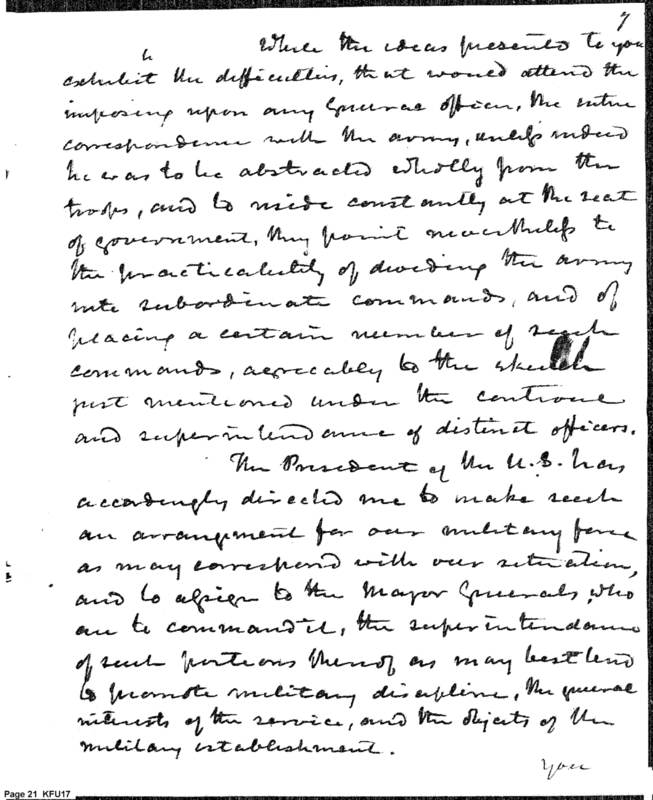 7
While the ideas presented to you
exhibit the difficulties, that would attend the
imposing upon any General officer, the entire
correspondence with the army, unless indeed
he was to be abstracted wholly from the
troops, and to reside constantly at the seat
of government, they point nevertheless to
the practicability of dividing the army
into subordinate commands, and of
placing a certain number of such
commands, agreeably to the sketch
just mentioned under the controul
and superintendance of distinct officers.
The President of the U.S. has
accordingly directed me to make such
an arrangement for our military force
as may correspond with our situation,
and to assign to the Major Generals, who
are to command it, the superintendance
of such portions thereof as may best tend
to promote military discipline, the general
interests of the service, and the objects of the
military establishment.
you
Page 21 KFU17